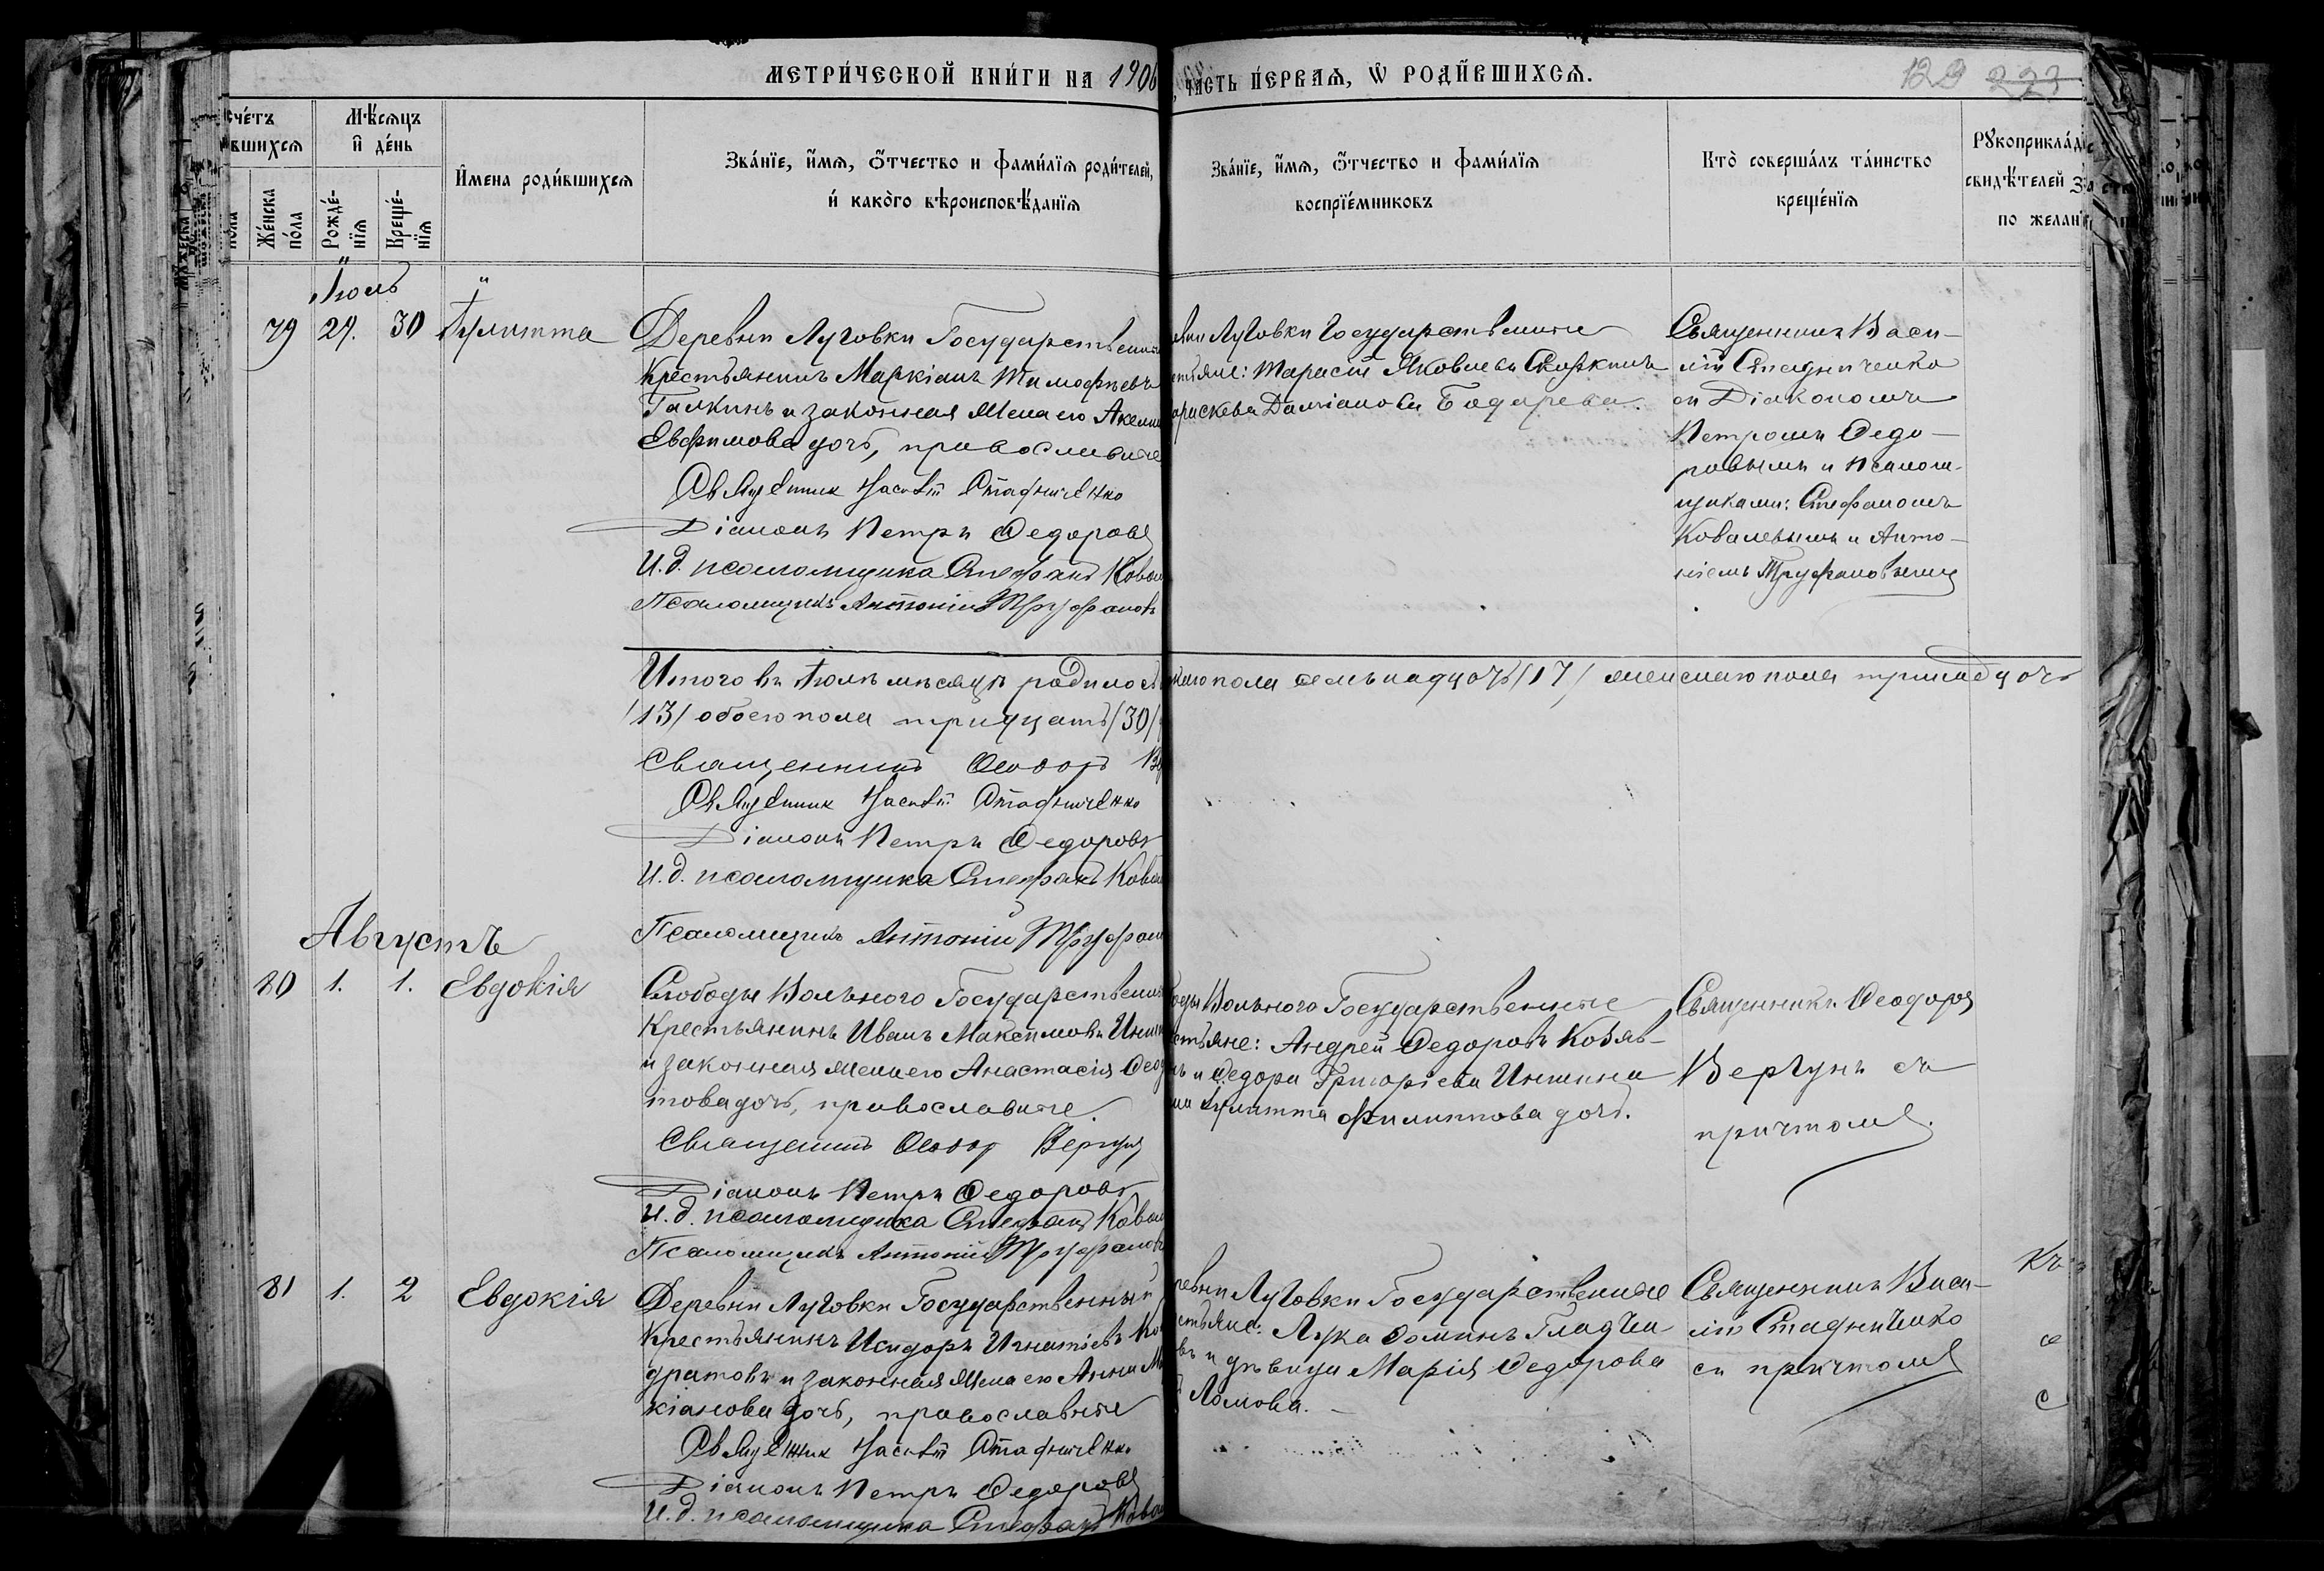 МЕТРИ́ЧЕСКОЙ КНИ́ГИ НА 1906
ЧАСТЬ ПЕ́РВАЯ, Ѡ РОДИ́ВШИХСЯ.
129 223
счéтъ
вшихся
Мѣ́сяцъ
и де́нь
пóла
Же́нска пóла
Рожде́нїя
Креще́нїя
И҆мена роди́вшихся
Зва́нїе, и҆́мя, ѻ҆́тчество и фами́лїя роди́телей,
и҆ какóго вѣроисповѣ́данїя
Зва́нїе, и҆́мя, ѻ҆́тчество и фами́лїя
воспрїе́мниковъ
Ктó соверша́лъ та́инство
креще́нїя
Рꙋкоприкла́д
свидѣ́телей за
по желан
Іюль
79 29. 30 Іулитта
Деревни Луговки Государствен
Крестьянинъ Маркіанъ Тимофѣевъ
Галкинъ и законная жена его Акели
Евфимова дочь, православные
Священник Василій Стадниченко
Діаконъ Петръ Федоровъ
И. д. псаломщика Стефанъ Ковал
Псаломщикъ Антоній Труфановъ
евни Луговки Государственные
стьяне: Тарасій Яковлевъ Скоркинъ
араскева Даміанова Бодарева.
Священникъ Васи-
лій Стадниченко
съ Діакономъ
Петромъ Федо-
ровымъ и псалом-
щиками: Стефаномъ
Ковалевымъ и Анто-
ніемъ Труфановымъ
Итого въ Іюлѣ мѣсяцѣ родилось
жского пола семьнадцать /17/ женскаго пола тринадцать
/13/ обоего пола тридцать /30/
Священникъ Феодоръ Ве
Священник Василій Стадниченко
Діаконъ Петръ Федоровъ
И. д. псаломщика Стефанъ Ковал
Псаломщикъ Антоній Труфан
Августъ
80 1. 1. Евдокія
Слободы Вольного Государственн
Крестьянинъ Иванъ Максимовъ Инши
и законная жена его Анастасія Феод
това дочь, православные.
Священникъ Феодор Вергун
Діаконъ Петръ Федоровъ
И. д. псаломщика Стефанъ Ковал
Псаломщикъ Антоній Труфановъ
оды Вольного Государственные
стьяне: Андрей Федоровъ Козяв-
нъ и Федора Григоріева Иншина
на Іулитта Филиппова дочь.
Священникъ Феодоръ
Вергунъ съ
причтомъ.
81 1. 2 Евдокія
Деревни Луговки Государственный
Крестьянинъ Исидоръ Игнатіевъ Кон
дратовъ и законная жена его Анна М
кіанова дочь, православные
Священник Василій Стадниченко
Діаконъ Петръ Федоровъ
И. д. псаломщика Стефанъ Ковал
ревни Луговки Государственные
стьяне: Лука Фоминъ Гладчи
въ и дѣвица Марія Федорова
Ломова.
Священникъ Васи-
лій Стадниченко
съ причтомъ
Къ
с
с